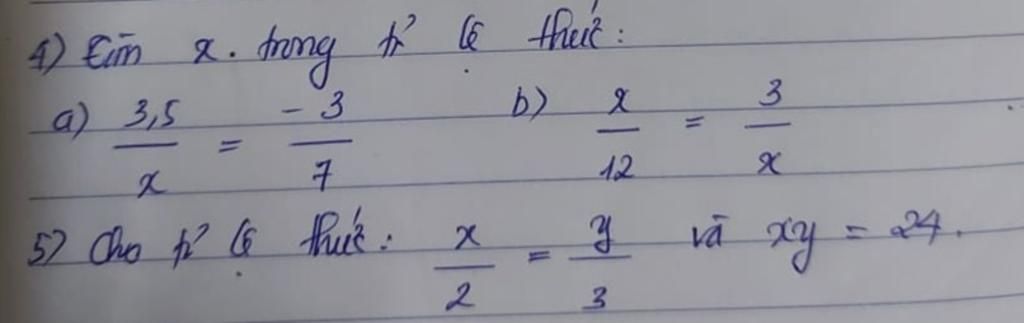 4) Tìm x. trong tỉ lệ thức:
a) 3,5/x = -3/7 b) x/12 = 3/x
5) Cho tỉ lệ thức: x/2 = y/3 và xy = 24.